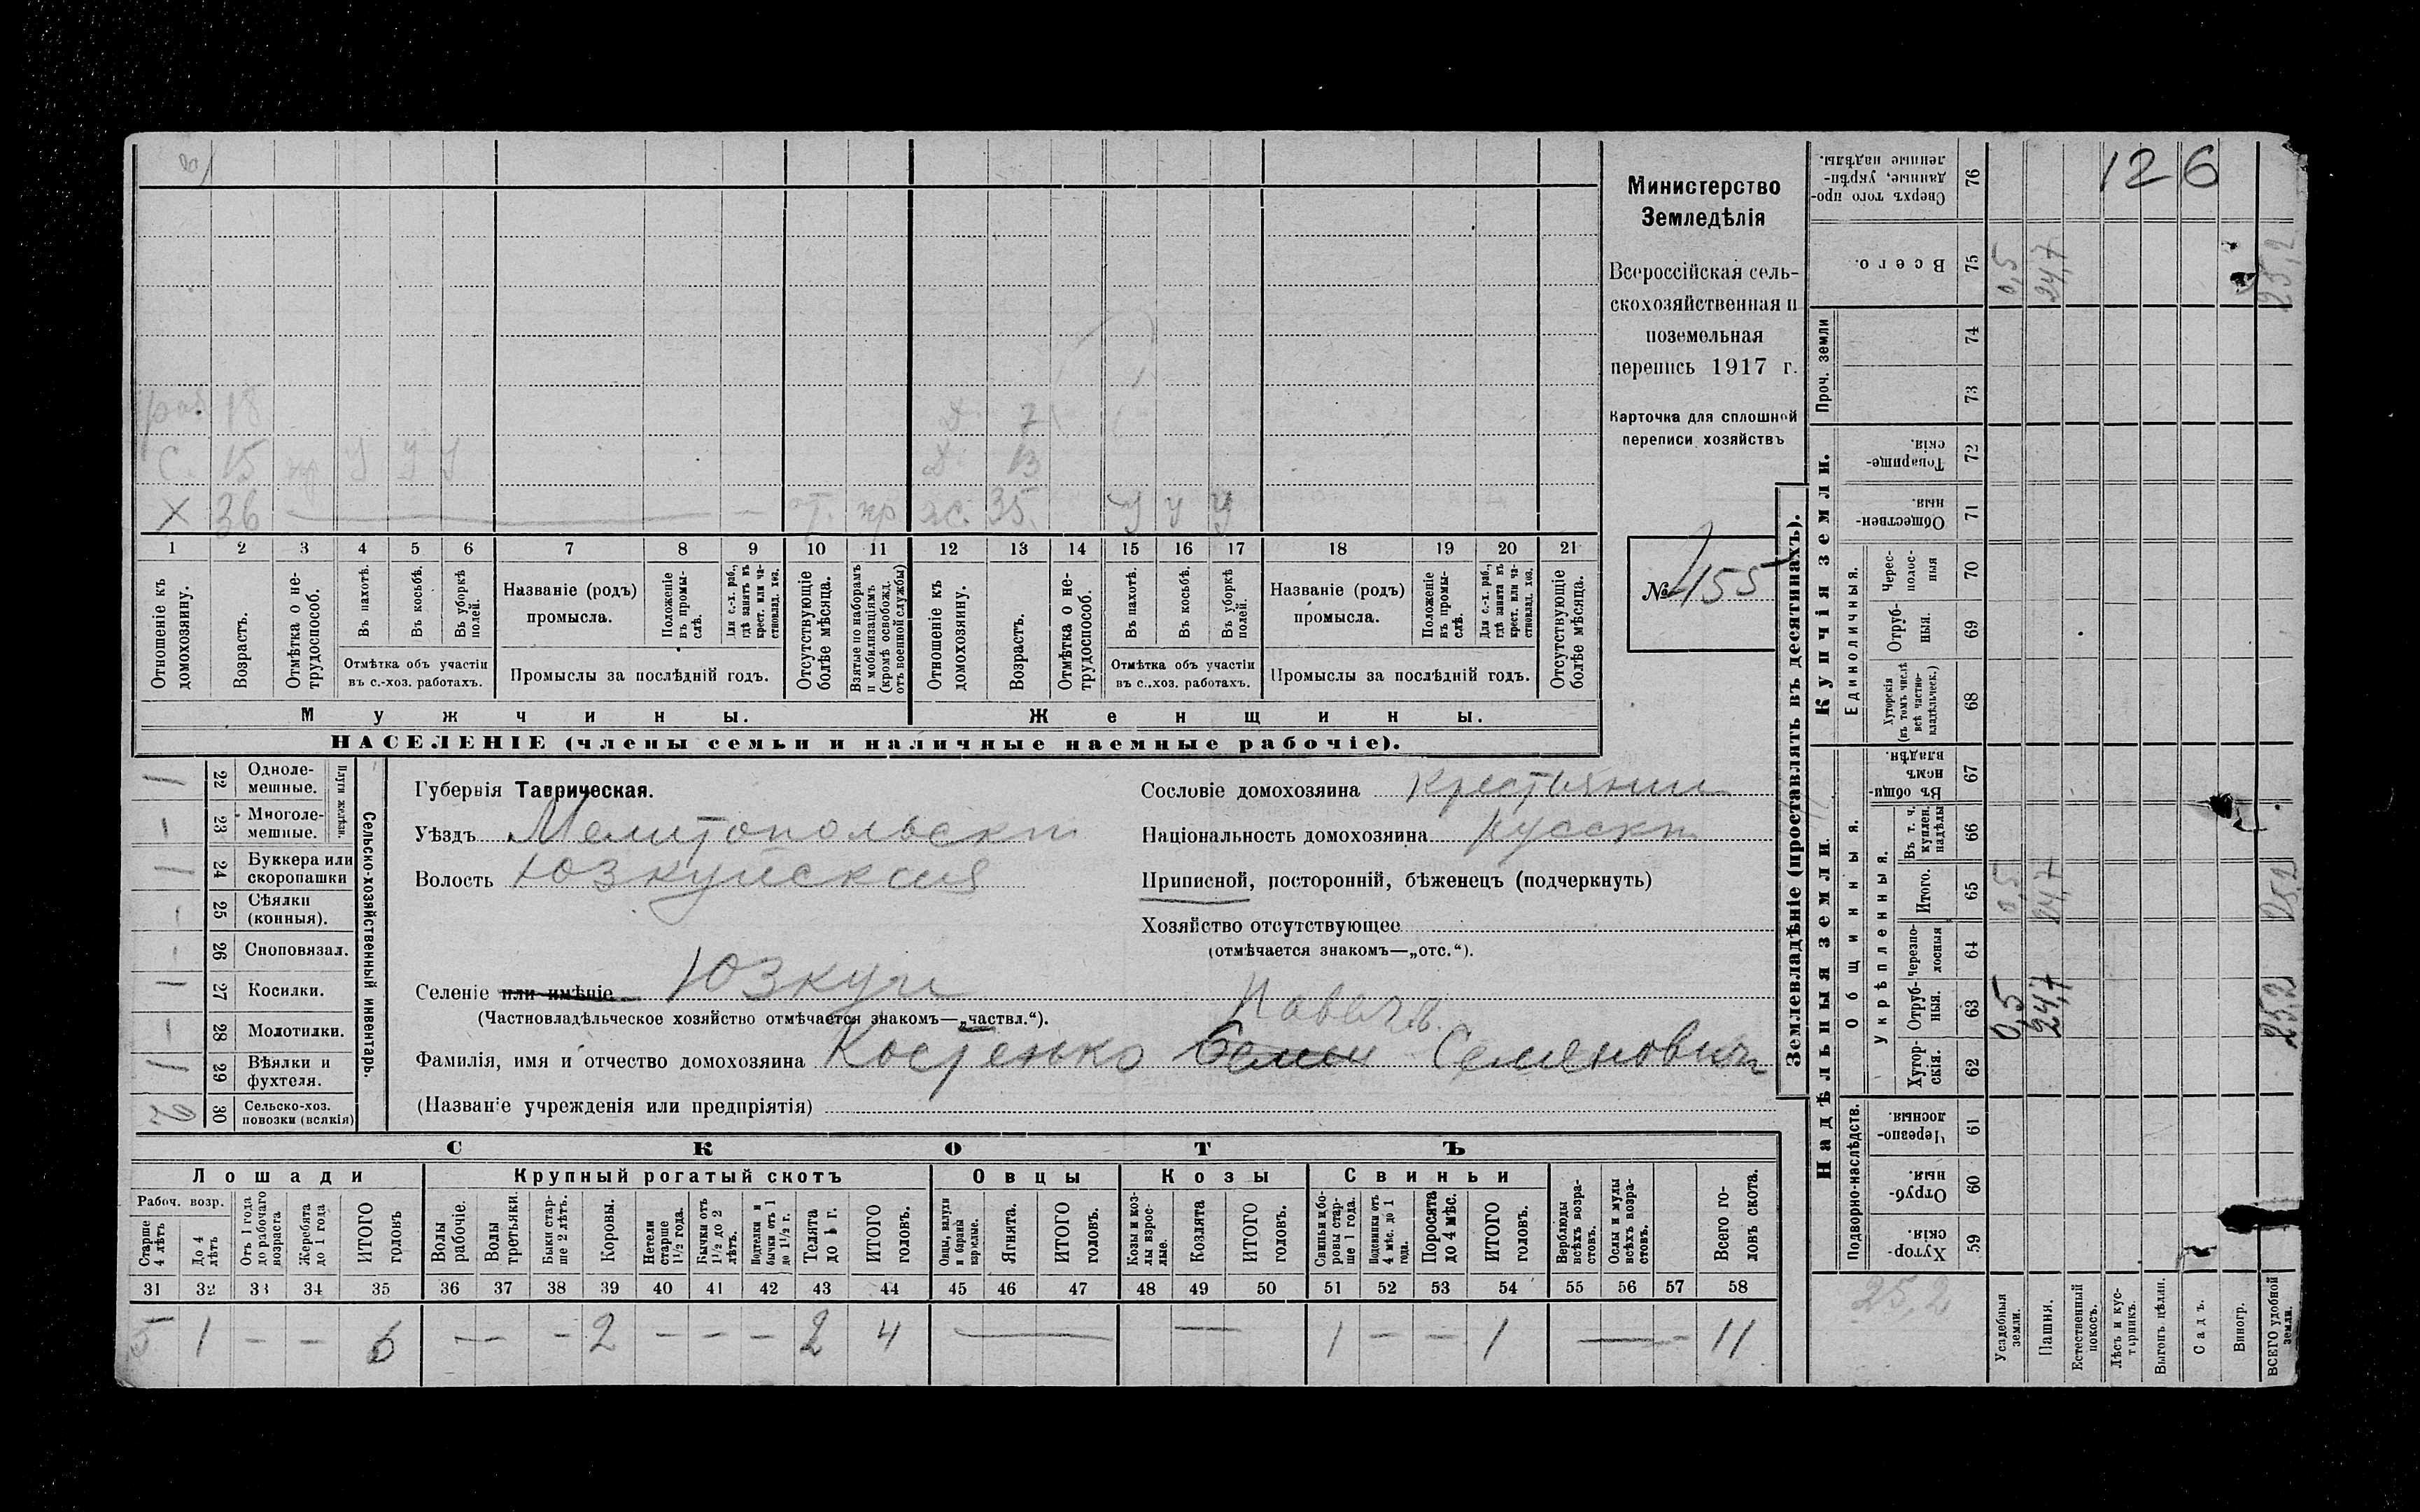 126
Министерство
Земледѣлія
Всероссійская сель-
скохозяйственная и
поземельная
перепись 1917 г.
Карточка для сплошной
переписи хозяйствъ
№ 155
раб. 18
Д. 7
С. 15 У У У
Д. 13
Х 36 — от. пр ж. 35. У У У
1 2 3 4 5 6 7 8 9 10 11 12 13 14 15 16 17 18 19 20 21
Отношеніе къ домохозяину.
Возрастъ.
Отмѣтка о не-трудоспособ.
Въ пахотѣ.
Въ косьбѣ.
Въ уборкѣ полей.
Отмѣтка объ участіи
въ с.-хоз. работахъ.
Названіе (родъ)
промысла.
Положеніе въ промы-слѣ.
Для с.-х. раб., гдѣ занятъ въ крест. или ча-стновлад. хоз.
Промыслы за послѣдній годъ.
Отсутствующіе болѣе мѣсяца.
Взятые по наборамъ и мобилизаціямъ (кромѣ освобожд. отъ военной службы)
Отношеніе къ домохозяину.
Возрастъ.
Отмѣтка о не-трудоспособ.
Въ пахотѣ.
Въ косьбѣ.
Въ уборкѣ полей.
Отмѣтка объ участіи
въ с.-хоз. работахъ.
Названіе (родъ)
промысла.
Положеніе въ промы-слѣ.
Для с.-х. раб., гдѣ занята въ крест. или ча-стновлад. хоз.
Промыслы за послѣдній годъ.
Отсутствующіе болѣе мѣсяца.
Мужчины. Женщины.
НАСЕЛЕНІЕ (члены семьи и наличные наемные рабочіе).
Сельско-хозяйственный инвентарь.
Плуги желѣзн.
1 22 Одноле-мешные.
– 23 Многоле-мешные.
1 24 Буккера или скоропашки
– 25 Сѣялки (конныя).
– 26 Сноповязал.
1 27 Косилки.
– 28 Молотилки.
1 29 Вѣялки и фухтеля.
2 30 Сельско-хоз. повозки (всякія)
Губернія Таврическая.
Уѣздъ Мелитопольскій
Волость Юзкуйская
Селеніе или имѣніе Юзкуи
(Частновладѣльческое хозяйство отмѣчается знакомъ—„частвл.“).
Сословіе домохозяина крестьянин
Національность домохозяина русскій
Приписной, посторонній, бѣженецъ (подчеркнуть)
Хозяйство отсутствующее
(отмѣчается знакомъ—„отс.“).
Павелъ
Фамилія, имя и отчество домохозяина Костенко Семен Семеновичъ
(Названіе учрежденія или предпріятія)
СКОТЪ
Лошади Крупный рогатый скотъ Овцы Козы Свиньи
Рабоч. возр.
Старше 4 лѣтъ
До 4 лѣтъ
Отъ 1 года до рабочаго возраста
Жеребята до 1 года
ИТОГО головъ
Волы рабочіе.
Волы третьяки.
Быки стар-ше 2 лѣтъ.
Коровы.
Нетели старше 1½ года.
Бычки отъ 1½ до 2 лѣтъ.
Подтелки и бычки отъ 1 до 1½ г.
Телята до 1 г.
ИТОГО головъ.
Овцы, валухи и бараны взрослые.
Ягнята.
ИТОГО головъ.
Козы и коз-лы взрос-лые.
Козлята
ИТОГО головъ.
Свиньи и бо-ровы стар-ше 1 года.
Подсвинки отъ 4 мѣс. до 1 года.
Поросята до 4 мѣс.
ИТОГО головъ.
Верблюды всѣхъ возра-стовъ.
Ослы и мулы всѣхъ возра-стовъ.
Всего го-ловъ скота.
31 32 33 34 35 36 37 38 39 40 41 42 43 44 45 46 47 48 49 50 51 52 53 54 55 56 57 58
5 1 – – 6 — – 2 – – – 2 4 — — 1 – – 1 — – 11
Землевладѣніе (проставлять въ десятинахъ).
Надѣльныя земли. Купчія земли. Проч. земли
Подворно-наслѣдств.
Общинныя.
Укрѣпленныя.
Единоличныя.
Хутор-скія. 59
Отруб-ныя. 60
Черезпо-лосныя. 61
Хутор-скія. 62
Отруб-ныя. 63
Черезпо-лосныя 64
Итого. 65
Въ т. ч. куплен. надѣлы 66
Въ общи-номъ владѣн. 67
Хуторскія (въ томъ числѣ всѣ частно-владѣльческ.) 68
Отруб-ныя. 69
Черес-полос-ныя 70
Обществен-ныя 71
Товарище-скія. 72
73
74
Всего. 75
Сверхъ того про-данные, укрѣп-ленные надѣлы. 76
25,2
Усадебныя земли. 0,5 0,5 0,5
Пашня. 24,7 24,7 24,7
Естественный покосъ.
Лѣсъ и кус-тарникъ.
Выгонъ цѣлин.
Садъ.
Виногр.
ВСЕГО удобной земли. 25,2 25,2 25,2